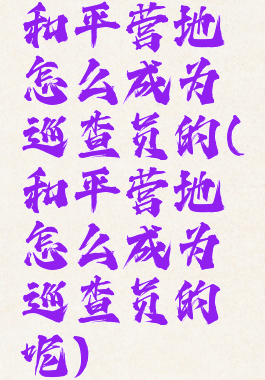 和平营地
怎么成为
巡查员的(
和平营地
怎么成为
巡查员的
呢)